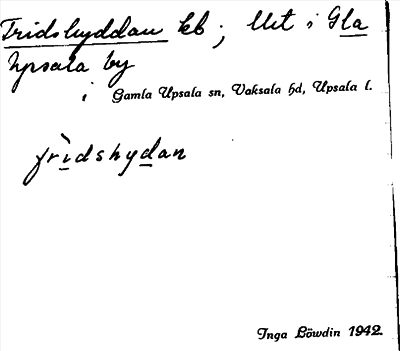 Fridshyddan kb; litt i Gla
Upsala by
i Gamla Upsala sn, Vaksala hd, Upsala l.
frìdshydan
Inga Löwdin 1942.